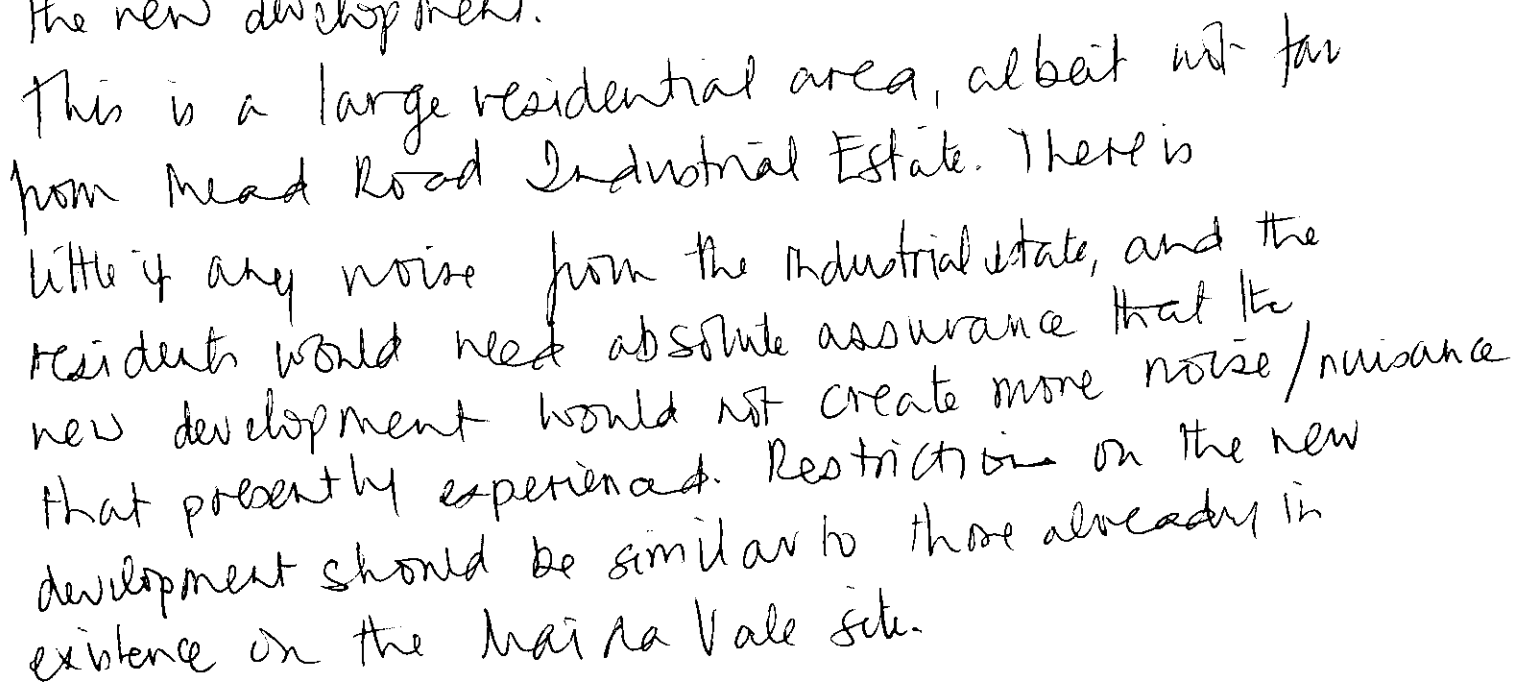 the new development.
This is a large residential area, albeit not far
from Mead Road Industrial Estate. There is
little if any noise from the industrial estate, and the
residents would need absolute assurance that the
new development would not create more noise/nuisance
that presently experienced. Restrictions on the new
development should be similar to those already in
existence on the Maida Vale site.